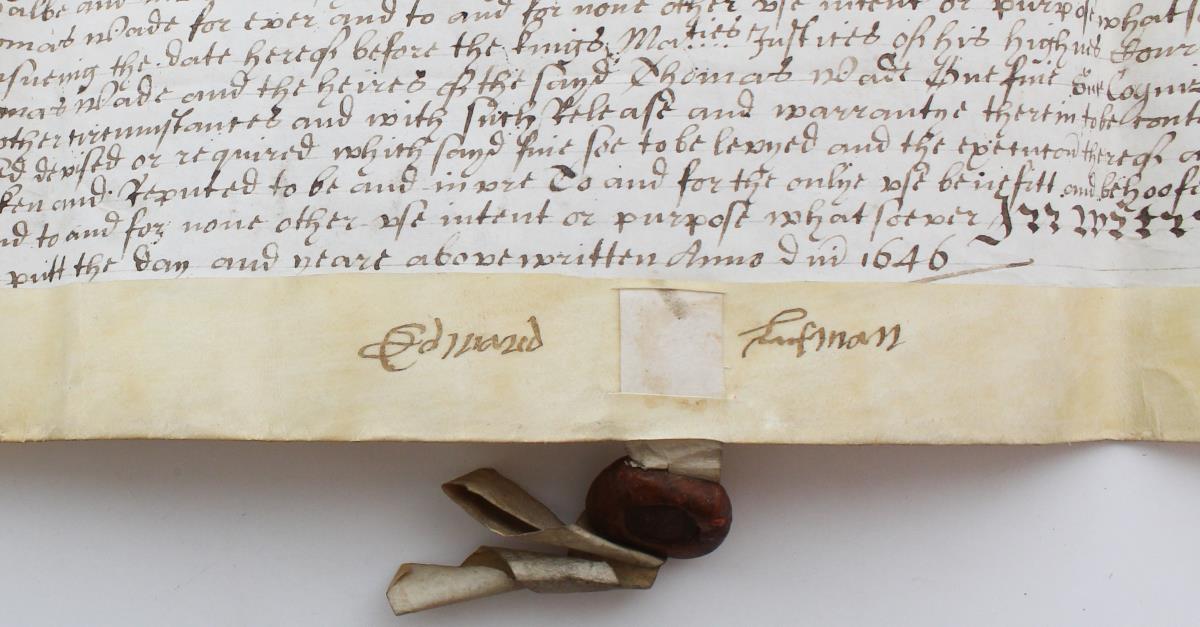 albe and
omas Wade for ever and to and for none other vse intent or purpose what
nsueing the date hereof before the kings Maties Justices of his highnes Cour
omas Wade and the heires of the sayd Thomas Wade One fine
other circumstances and with such Release and warrantye therein to be cont
ed devised or required which sayd fine soe to be levyed and the execucon thereof
ken and Reputed to be and invre To and for the onlye vse benefitt and behoofe
nd to and for none other vse intent or purpose whatsoever In Witn
putt the day and yeare above written Anno dni 1646
Edward